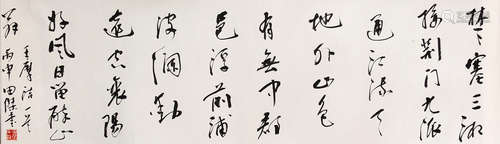 楚塞三湘
接荆门九派
通江流天
地外山色
有無中郡
邑浮前浦
波澜動
遠空襄陽
好風日留醉与山
翁
王摩诘一首
丙申田傑書